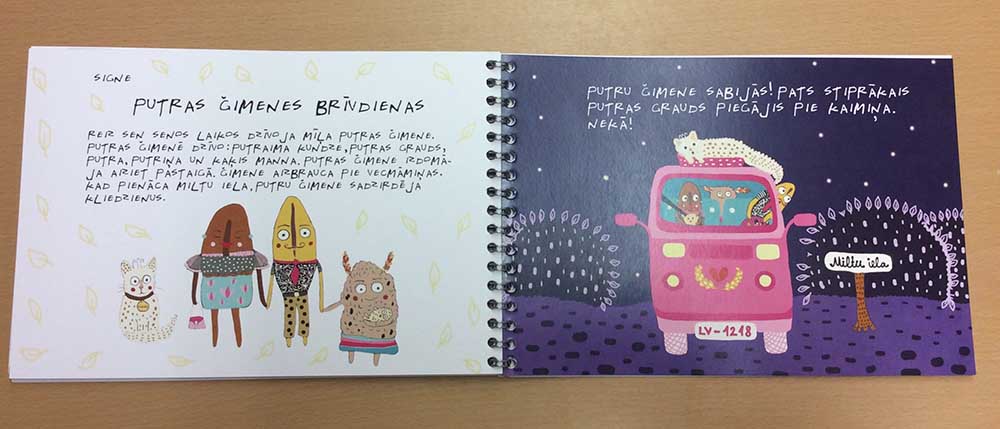 SIGNE
PUTRAS ĢIMENES BRĪVDIENAS
REIZ SEN SENOS LAIKOS DZĪVOJA MĪĻA PUTRAS ĢIMENE.
PUTRAS ĢIMENĒ DZĪVO: PUTRAIMA KUNDZE, PUTRAS GRAUDS,
PUTRA, PUTRIŅA UN KAĶIS MANNA. PUTRAS ĢIMENE IZDOMĀ-
JA AIZIET PASTAIGĀ. ĢIMENE AIZBRAUCA PIE VECMĀMIŅAS.
KAD PIENĀCA MILTU IELA, PUTRU ĢIMENE SADZIRDĒJA
KLIEDZIENUS.
PUTRU ĢIMENE SABIJĀS! PATS STIPRĀKAIS
PUTRAS GRAUDS PIEGĀJIS PIE KAIMIŅA.
NEKĀ!
Miltu iela
LV-1218